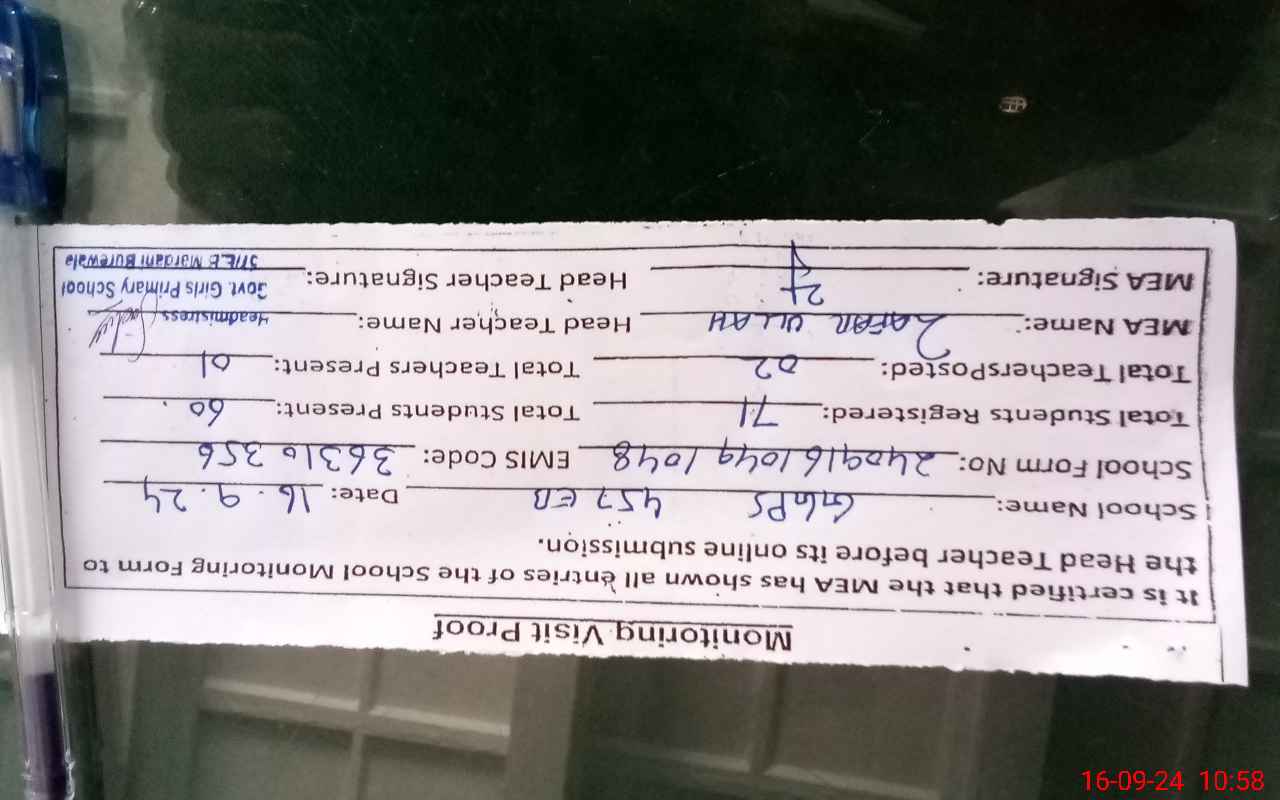 Monitoring Visit Proof
It is certified that the MEA has shown all entries of the School Monitoring Form to
the Head Teacher before its online submission.
School Name: GGPS 457 EB Date: 16.9.24
School Form No: 24091610491048 EMIS Code: 36310356
Total Students Registered: 71 Total Students Present: 60
Total TeachersPosted: 02 Total Teachers Present: 01
MEA Name: ZAFAR ULLAH Head Teacher Name: Headmistress
MEA Signature: Head Teacher Signature: Govt. Girls Primary School
Mardani Burewala
16-09-24 10:58